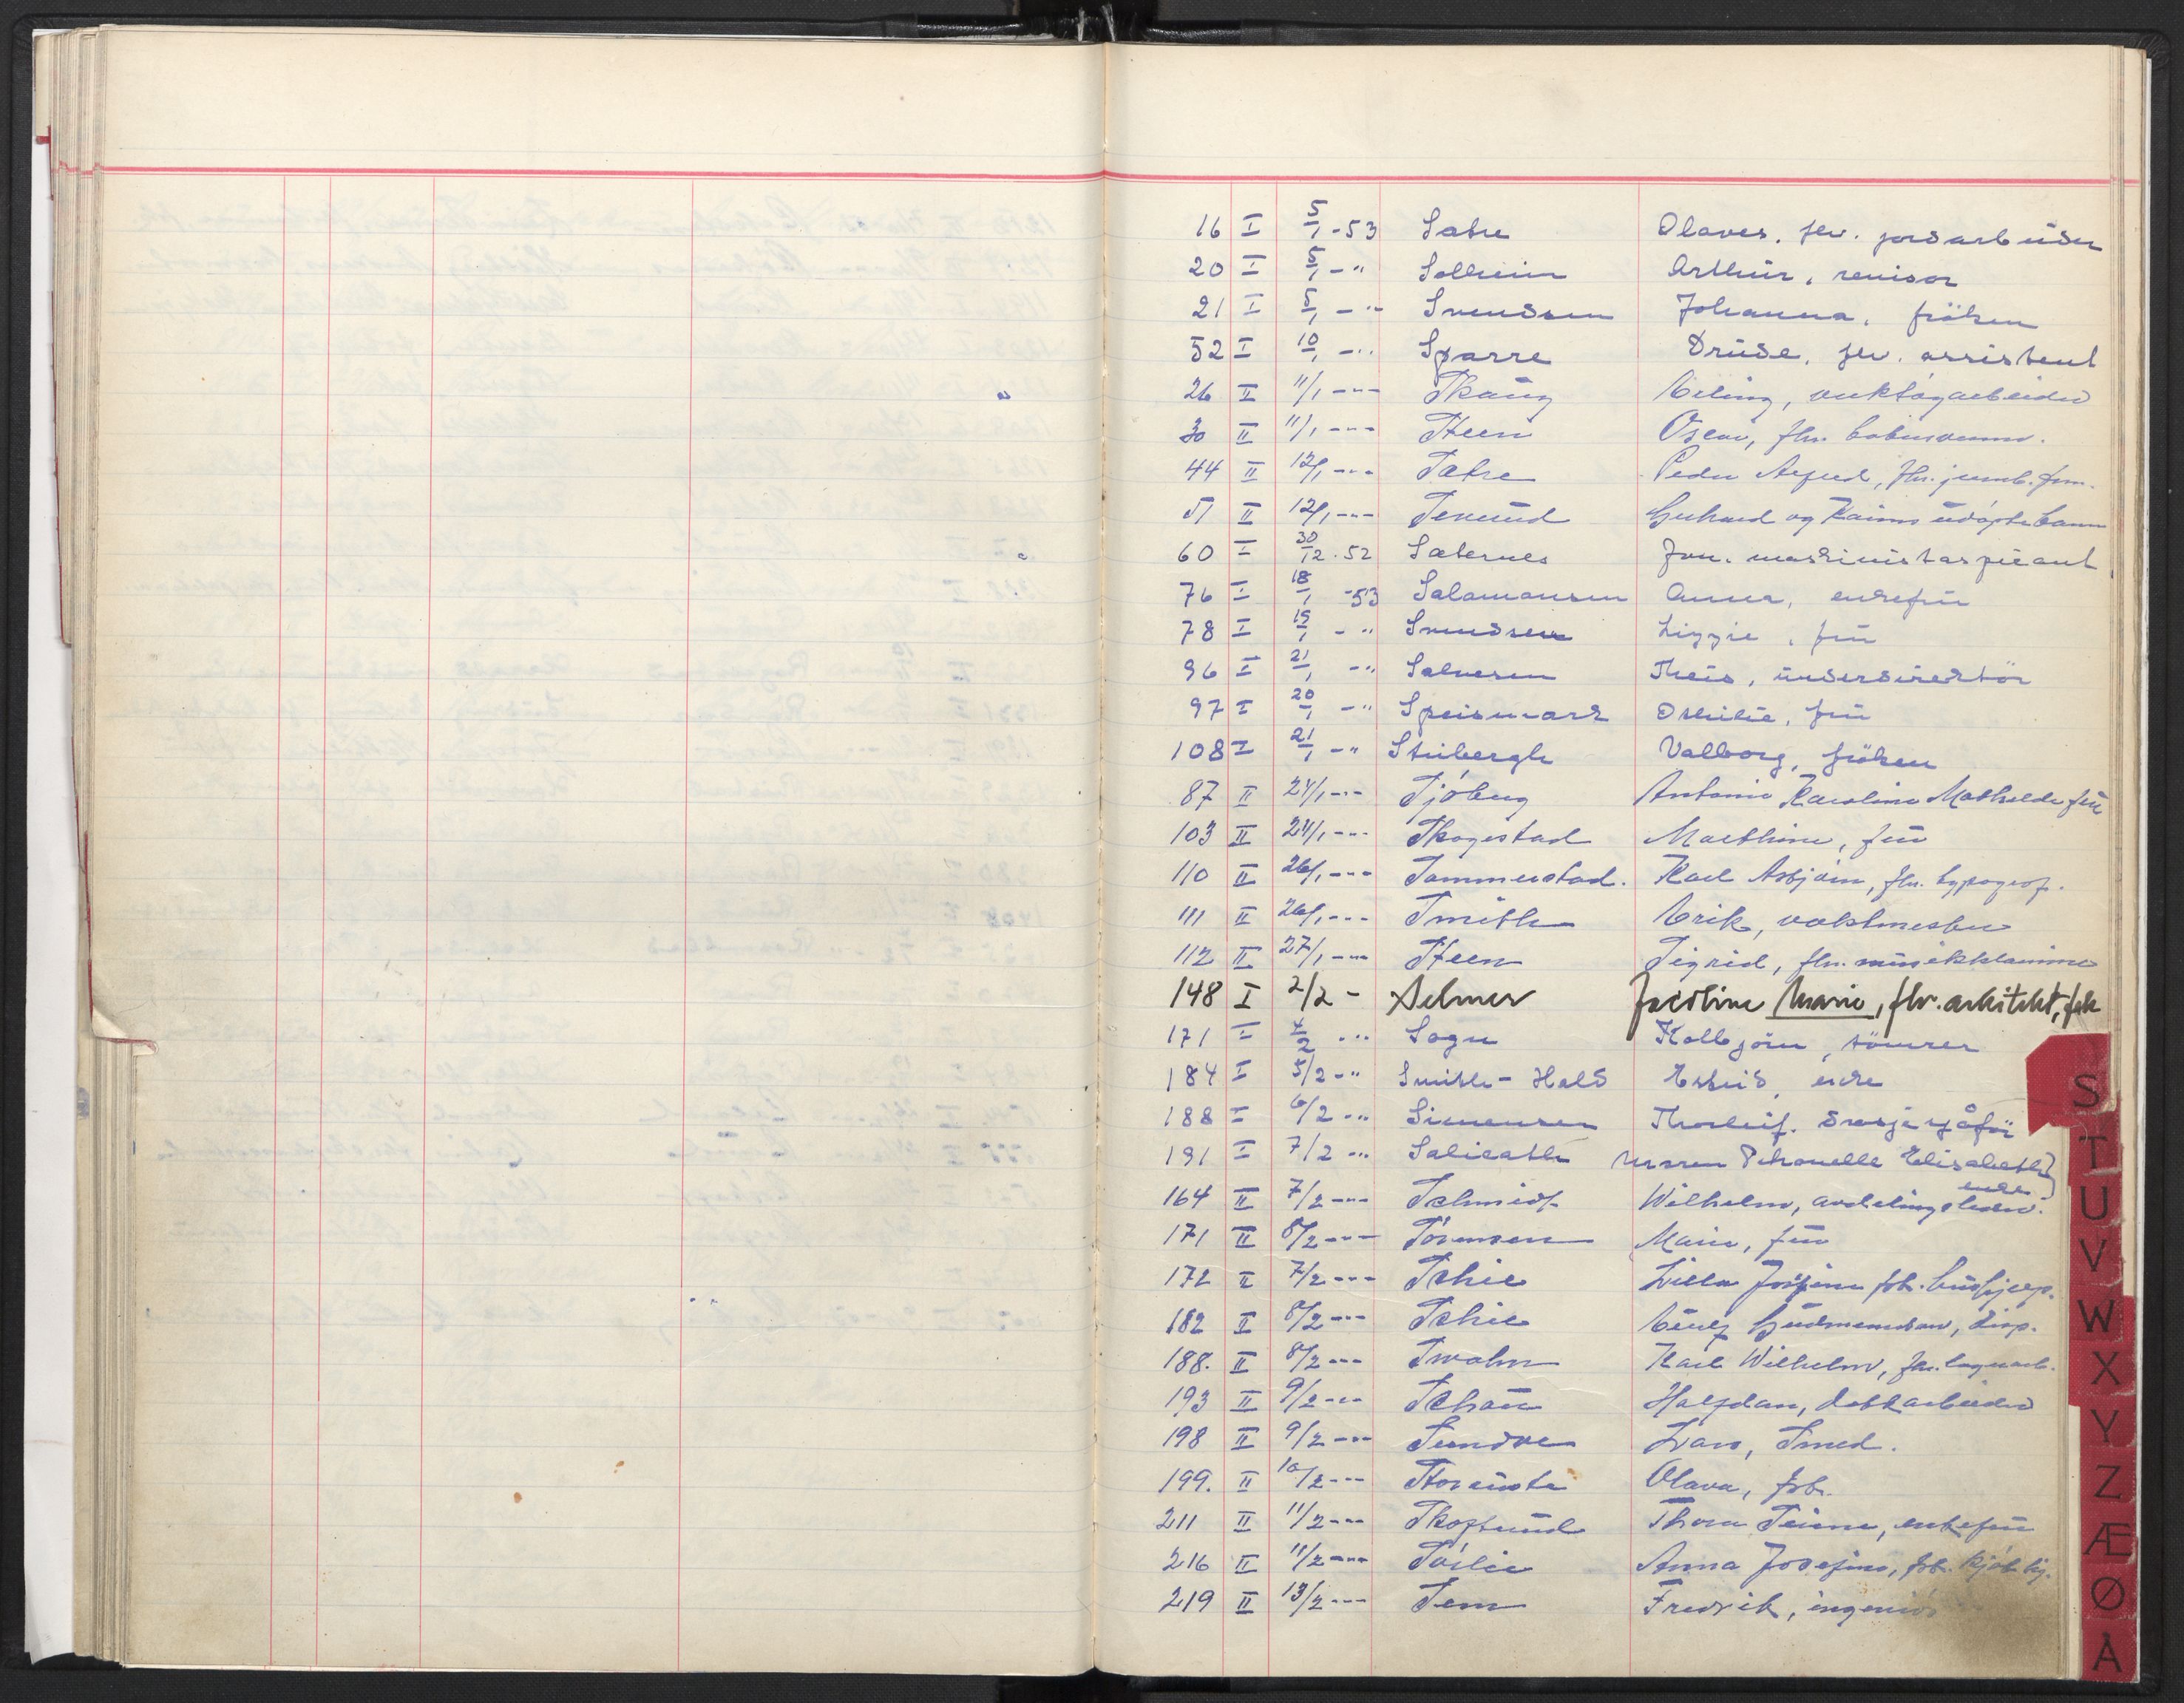 16 I 5/1 - 53 Satre Olaves, flv. jordarbeider
20 I 5/1 - " Solheim Arthur, revisor
21 I 5/1 - " Svendsen Johanna, fröken
52 I 10/1 - " Sparre Druse, flv. assistent
26 II 11/1 - " - Skaug Erling, verktøyarbeider
30 II 11/1 - " - Steen Oscar, flv.
44 II 12/1 - " - Sætre Peder Alfred, flv. jernb.fm.
51 II 12/1 - " - Gerhard og
60 I 30/12 - 52 Sæternes Jon, maskinistaspirant
76 I 18/1 - 53 Salamonsen Anna, enkefru
78 I 15/1 - " Svendsen Lizzie, fru
96 I 21/1 - " Salvesen Theis, underdirektör
97 I 20/1 - " Speismark Othilie, fru
108 I 21/1 - " Stibergh Valborg, fröken
87 II 24/1 - " - Sjøberg Antonie Karoline Mathilde fru
103 II 24/1 - " - Skogestad Marthine, fru
110 II 26/1 - " - Sammerstad. Karl Asbjørn, flv. typograf.
111 II 26/1 - " - Smith Erik, vaktmester
112 II 27/1 - " - Steen Sigrid, flv. musikklærerinne
148 I 2/2 - Selmer Jacobine Marie, flv. arkitekt, frk
171 I 4/2 - " Sogn Kolbjörn, tömrer
184 I 5/2 - " Smith-Hald enke
188 I 6/2 - " Simensen Thorleif, drosjesjåför
191 I 7/2 - " Salicath Maren Petronelle Elisabeth
enke
164 II 7/2 - " - Schmidt Wilhelm, avdelingsleder.
171 II 8/2 - " - Sørensen Marie, fru
172 II 7/2 - " - Schie frk. hushjelp.
182 II 8/2 - " - Schie Gudmundsen, disp.
188. II 8/2 - " - Swahn Karl Wilhelm, flv. lagerarb.
193 II 9/2 - " - Schau Halfdan, dokkarbeider
198 II 9/2 - " - Sundve Ivar, Smed.
199. II 10/2 - " - Olava, frk.
211 II 11/2 - " - Skoglund Thora enkefru
216 II 11/2 - " - Sørlie Anna Josefine, frk. kjøkhj.
219 II 13/2 - " - Sem Fredrik, ingeniør
S
T
U
V
W
X
Y
Z
Æ
Ø
Å